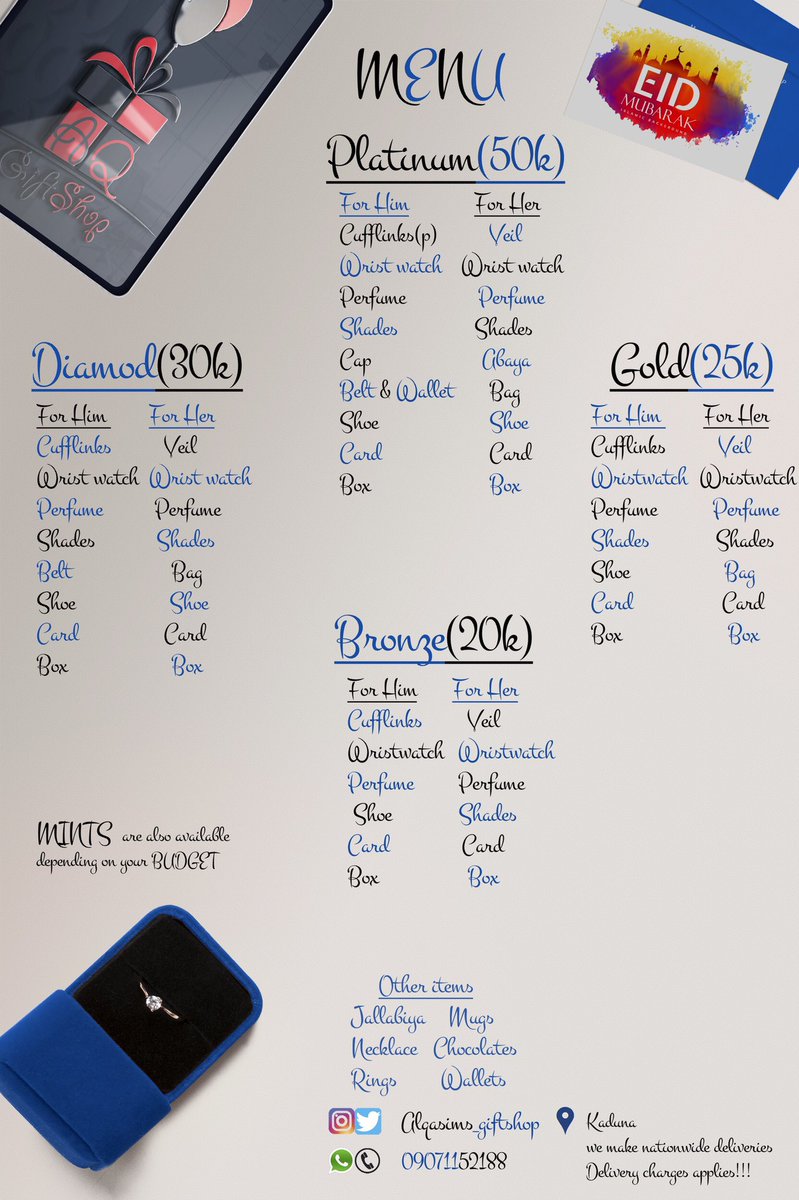 AQ
GiftShop
EID
MUBARAK
ISLAMIC BACKGROUND
MENU
Platinum(50k)
For Him For Her
Cufflinks(p) Veil
Wrist watch Wrist watch
Perfume Perfume
Shades Shades
Cap Abaya
Belt & Wallet Bag
Shoe Shoe
Card Card
Box Box
Diamod(30k)
For Him For Her
Cufflinks Veil
Wrist watch Wrist watch
Perfume Perfume
Shades Shades
Belt Bag
Shoe Shoe
Card Card
Box Box
Gold(25k)
For Him For Her
Cufflinks Veil
Wristwatch Wristwatch
Perfume Perfume
Shades Shades
Shoe Bag
Card Card
Box Box
Bronze(20k)
For Him For Her
Cufflinks Veil
Wristwatch Wristwatch
Perfume Perfume
Shoe Shades
Card Card
Box Box
MINTS are also available
depending on your BUDGET
Other items
Jallabiya Mugs
Necklace Chocolates
Rings Wallets
Alqasims_giftshop
09071152188
Kaduna
we make nationwide deliveries
Delivery charges applies!!!